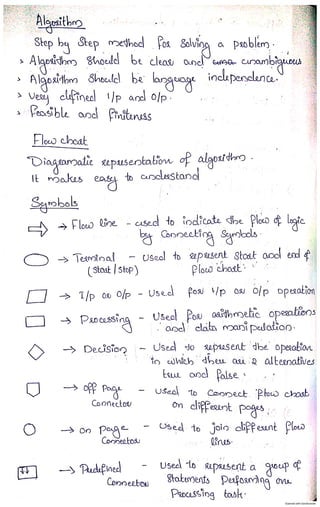 Algorithm
Step by Step method for solving a problem.
> Algorithm should be clear and unambiguous
> Algorithm should be language independence.
> very defined I/p and O/p.
> Feasible and finiteness
Flow chart
Diagramatic representation of algorithm.
It makes easy to understand
Symbols
→ Flow line - used to indicate the flow of logic
by Connecting Symbols.
→ Terminal - Used to represent Start and end of
(Start / Stop) flow chart.
→ I/p or O/p - Used for I/p or O/p operation
→ Processing - Used for arithmetic operations
and data manipulation.
→ Decision - Used to represent the operation
in which there are 2 alternatives
true and false.
→ off Page - Used to Connect flow chart
Connector on different pages.
→ on page - Used to join different flow
Connector lines.
→ Predefined - Used to represent a group of
Connector Statements Performing one
Processing task.